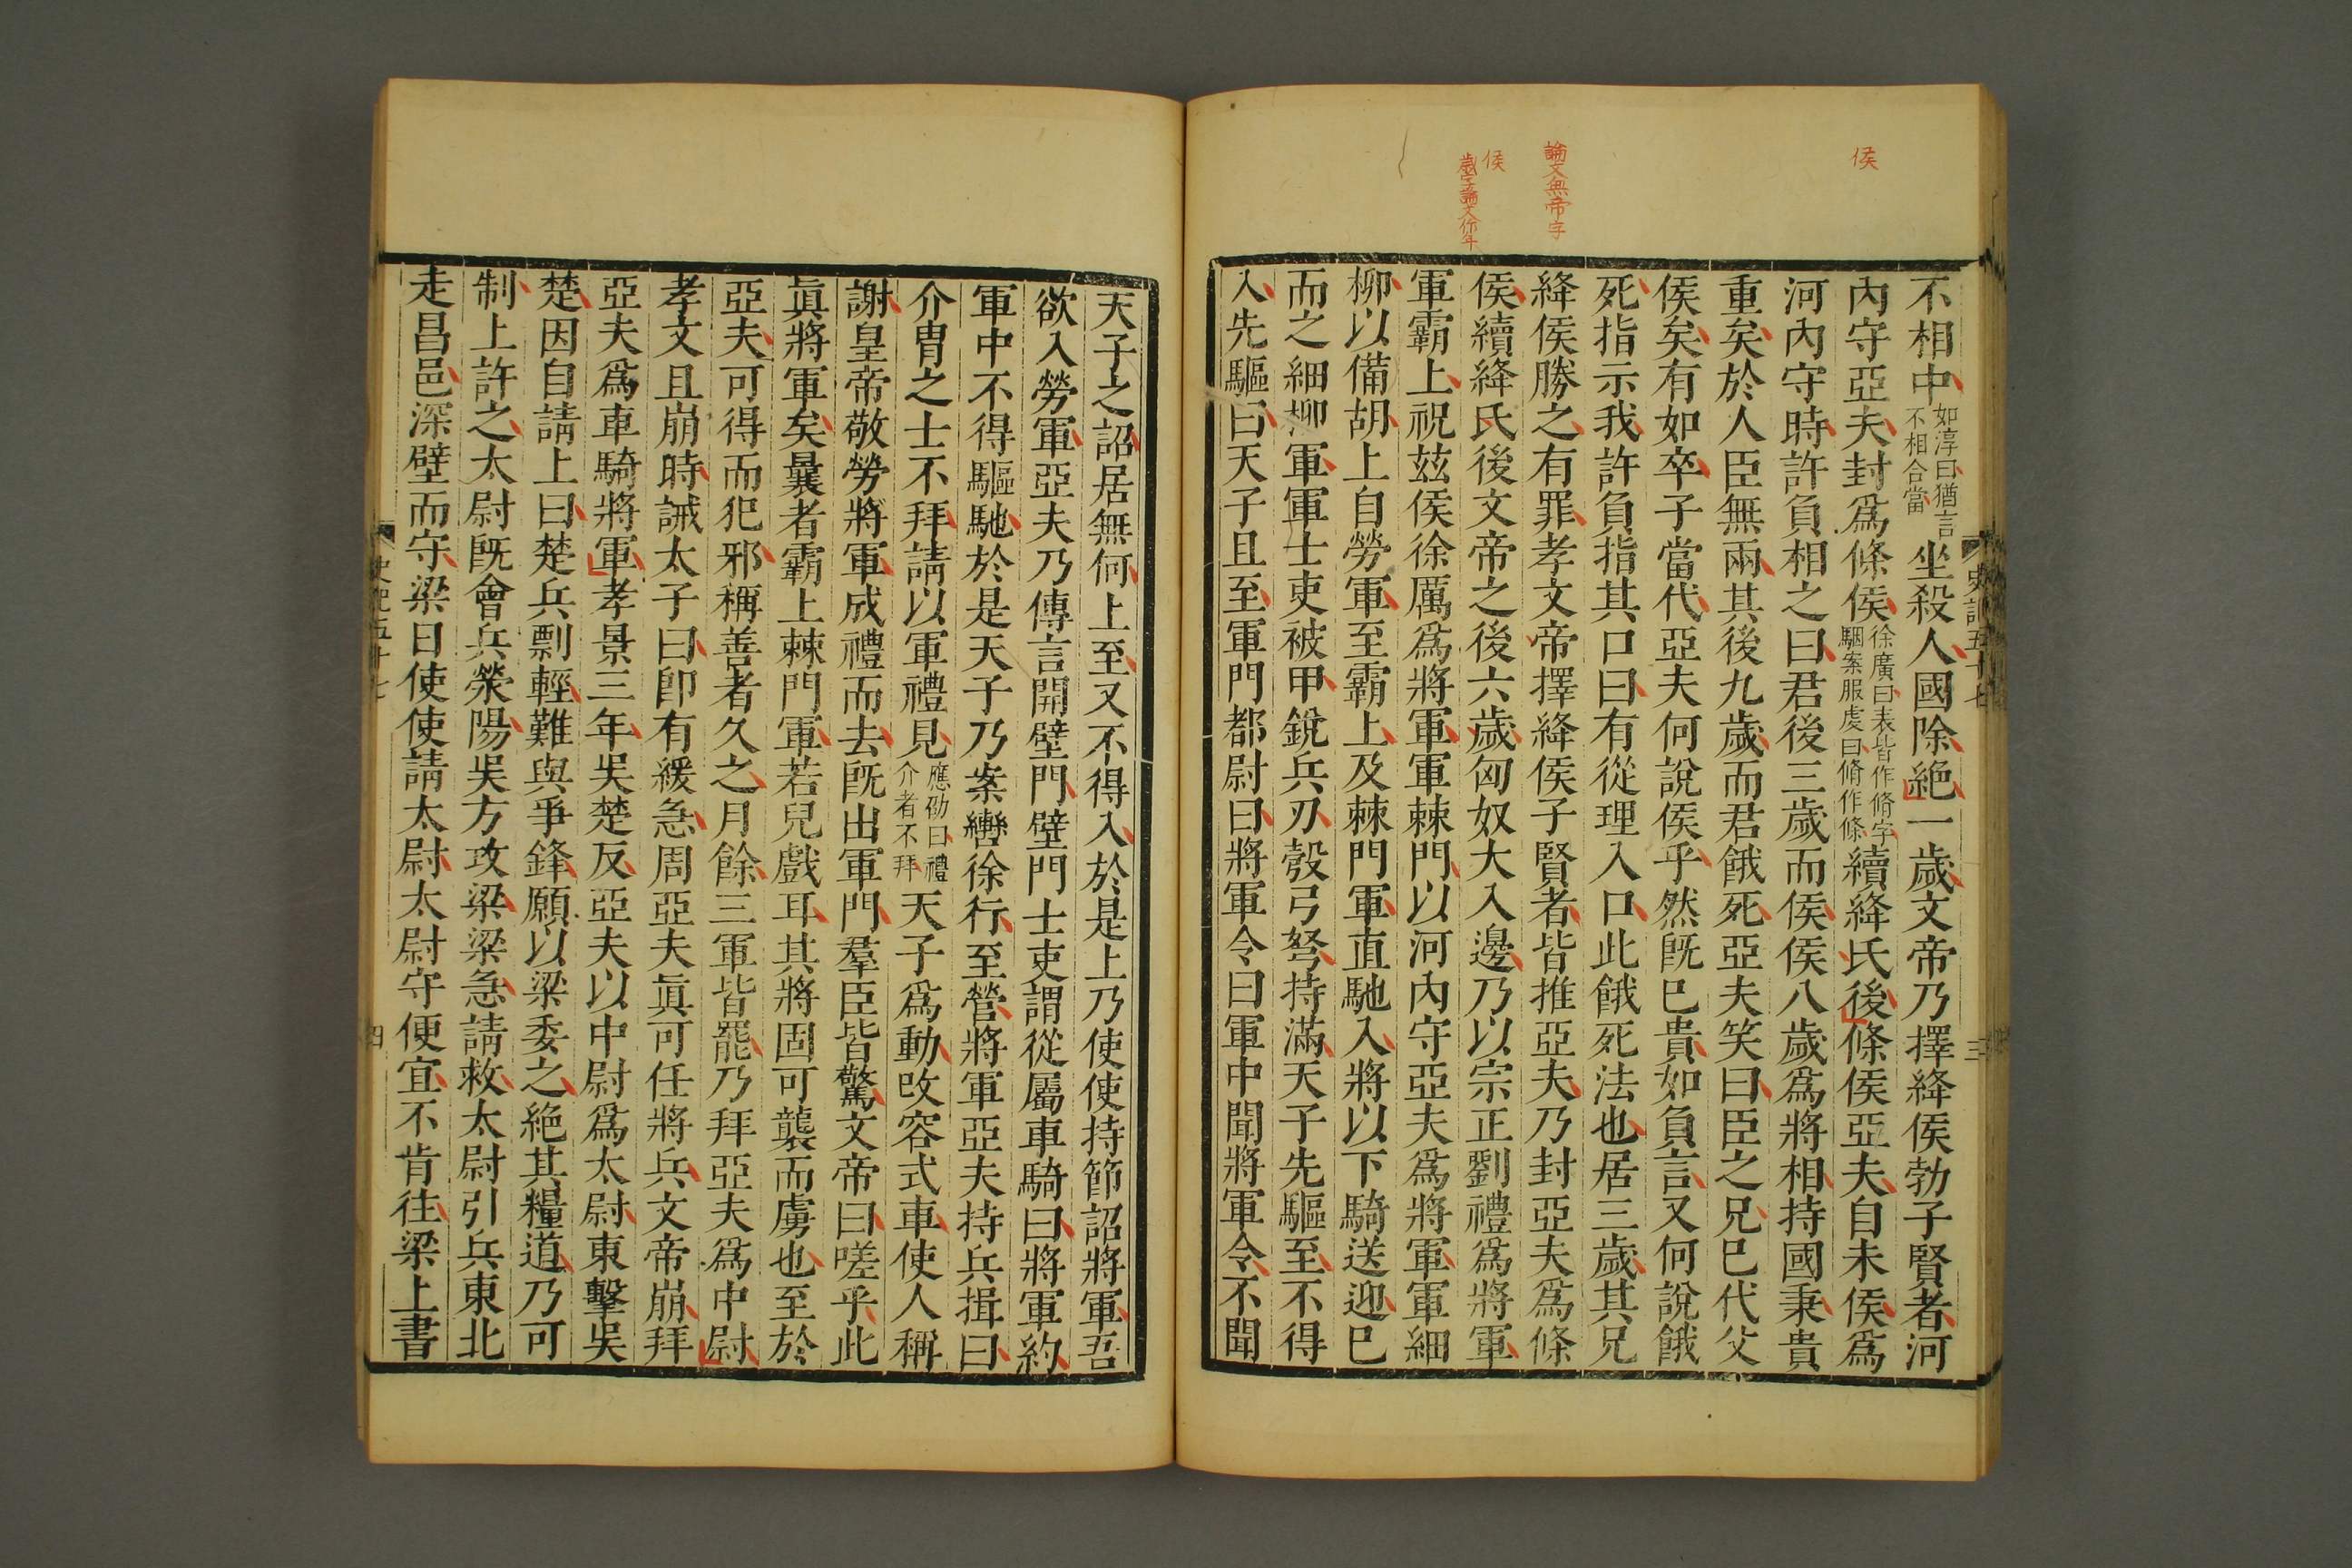 侯
論文無帝字
侯
歲字論文作年
不相中如淳曰猶言不相合當坐殺人國除絶一歲文帝乃擇絳侯勃子賢者河
內守亞夫封爲條侯徐廣曰表皆作脩字駰案服虔曰脩作條續絳氏後條侯亞夫自未侯爲
河內守時許負相之曰君後三歲而侯侯八歲爲將相持國秉貴
重矣於人臣無兩其後九歲而君餓死亞夫笑曰臣之兄已代父
侯矣有如卒子當代亞夫何說侯乎然旣已貴如負言又何說餓
死指示我許負指其口曰有從理入口此餓死法也居三歲其兄
絳侯勝之有罪孝文帝擇絳侯子賢者皆推亞夫乃封亞夫爲條
侯續絳氏後文帝之後六歲匈奴大入邊乃以宗正劉禮爲將軍
軍霸上祝茲侯徐厲爲將軍軍棘門以河內守亞夫爲將軍軍細
柳以備胡上自勞軍至霸上及棘門軍直馳入將以下騎送迎已
而之細柳軍軍士吏被甲銳兵刃彀弓弩持滿天子先驅至不得
入先驅曰天子且至軍門都尉曰將軍令曰軍中聞將軍令不聞
史記五十七
三
天子之詔居無何上至又不得入於是上乃使使持節詔將軍吾
欲入勞軍亞夫乃傳言開壁門壁門士吏謂從屬車騎曰將軍約
軍中不得驅馳於是天子乃案轡徐行至營將軍亞夫持兵揖曰
介胄之士不拜請以軍禮見應劭曰禮介者不拜天子爲動改容式車使人稱
謝皇帝敬勞將軍成禮而去旣出軍門羣臣皆驚文帝曰嗟乎此
眞將軍矣曩者霸上棘門軍若兒戲耳其將固可襲而虜也至於
亞夫可得而犯邪稱善者久之月餘三軍皆罷乃拜亞夫爲中尉
孝文且崩時誡太子曰卽有緩急周亞夫眞可任將兵文帝崩拜
亞夫爲車騎將軍孝景三年吳楚反亞夫以中尉爲太尉東擊吳
楚因自請上曰楚兵剽輕難與爭鋒願以梁委之絶其糧道乃可
制上許之太尉旣會兵滎陽吳方攻梁梁急請救太尉引兵東北
走昌邑深壁而守梁日使使請太尉太尉守便宜不肯往梁上書
史記五十七
四